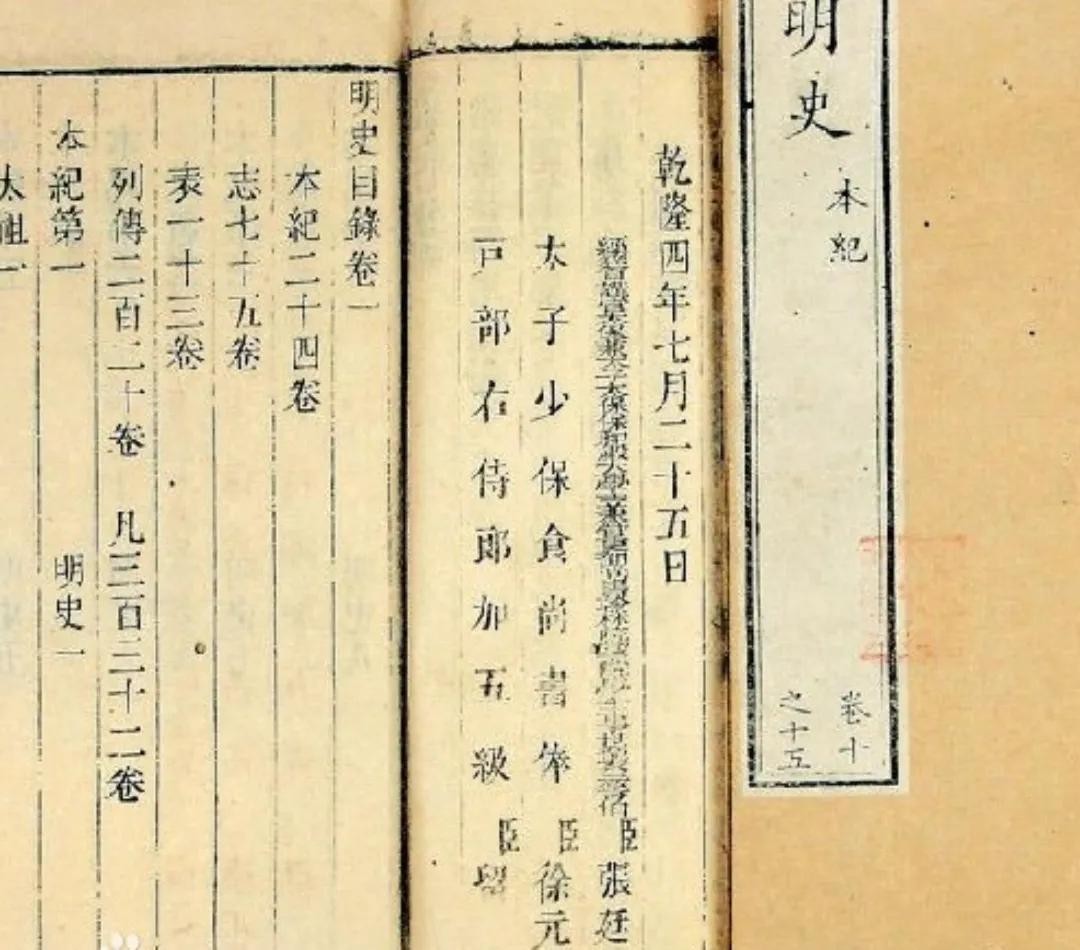 明史
本紀
卷十
之十五
乾隆四年七月二十五日
經筵講官太保兼太子太保保和殿大學士兼管吏部尚書事
臣張廷
太子少保食尚書俸
臣徐元
戸部右侍郎加五級
臣留
明史目錄卷一
本紀二十四卷
志七十五卷
表一十三卷
列傳二百二十卷 凡三百三十二卷
本紀第一 明史一
太祖一